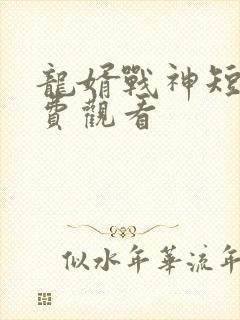 龍婿戰神短
費觀看
似水年華流年